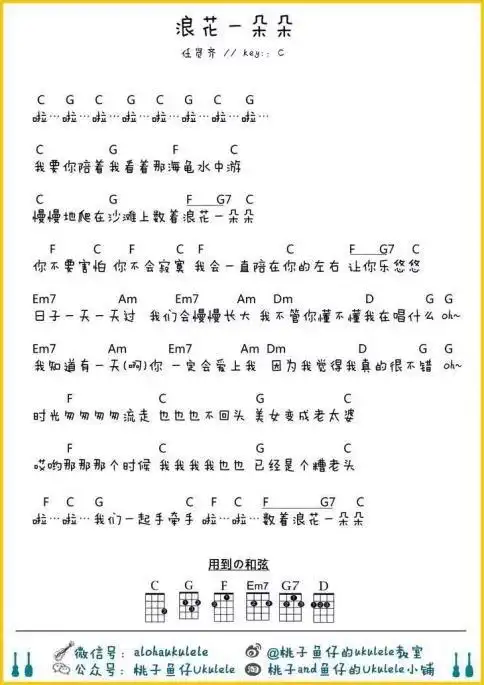 浪花一朵朵
任贤齐 // key: C
C G C G C G C G
啦… 啦… 啦… 啦… 啦… 啦… 啦… 啦…
C G F C
我要你陪着我看着那海龟水中游
C G F G7 C
慢慢地爬在沙滩上数着浪花一朵朵
F C F C F C F G7 C
你不要害怕 你不会寂寞 我会一直陪在你的左右 让你乐悠悠
Em7 Am Em7 Am Dm D G G
日子一天一天过 我们会慢慢长大 我不管你懂不懂我在唱什么 oh~
Em7 Am Em7 Am Dm D G G
我知道有一天(啊)你 一定会爱上我 因为我觉得我真的很不错 oh~
F C G C
时光匆匆匆匆流走 也也也不回头 美女变成老太婆
F C G C
哎哟那那那个时候 我我我我也也 已经是个糟老头
F C G C F C F G7 C
啦…啦…我们一起手牵手 啦…啦…数着浪花一朵朵
用到の和弦
C G F Em7 G7 D
微信号: alohaukulele @桃子鱼仔的ukulele教室
公众号: 桃子鱼仔Ukulele 淘 桃子and鱼仔的Ukulele小铺